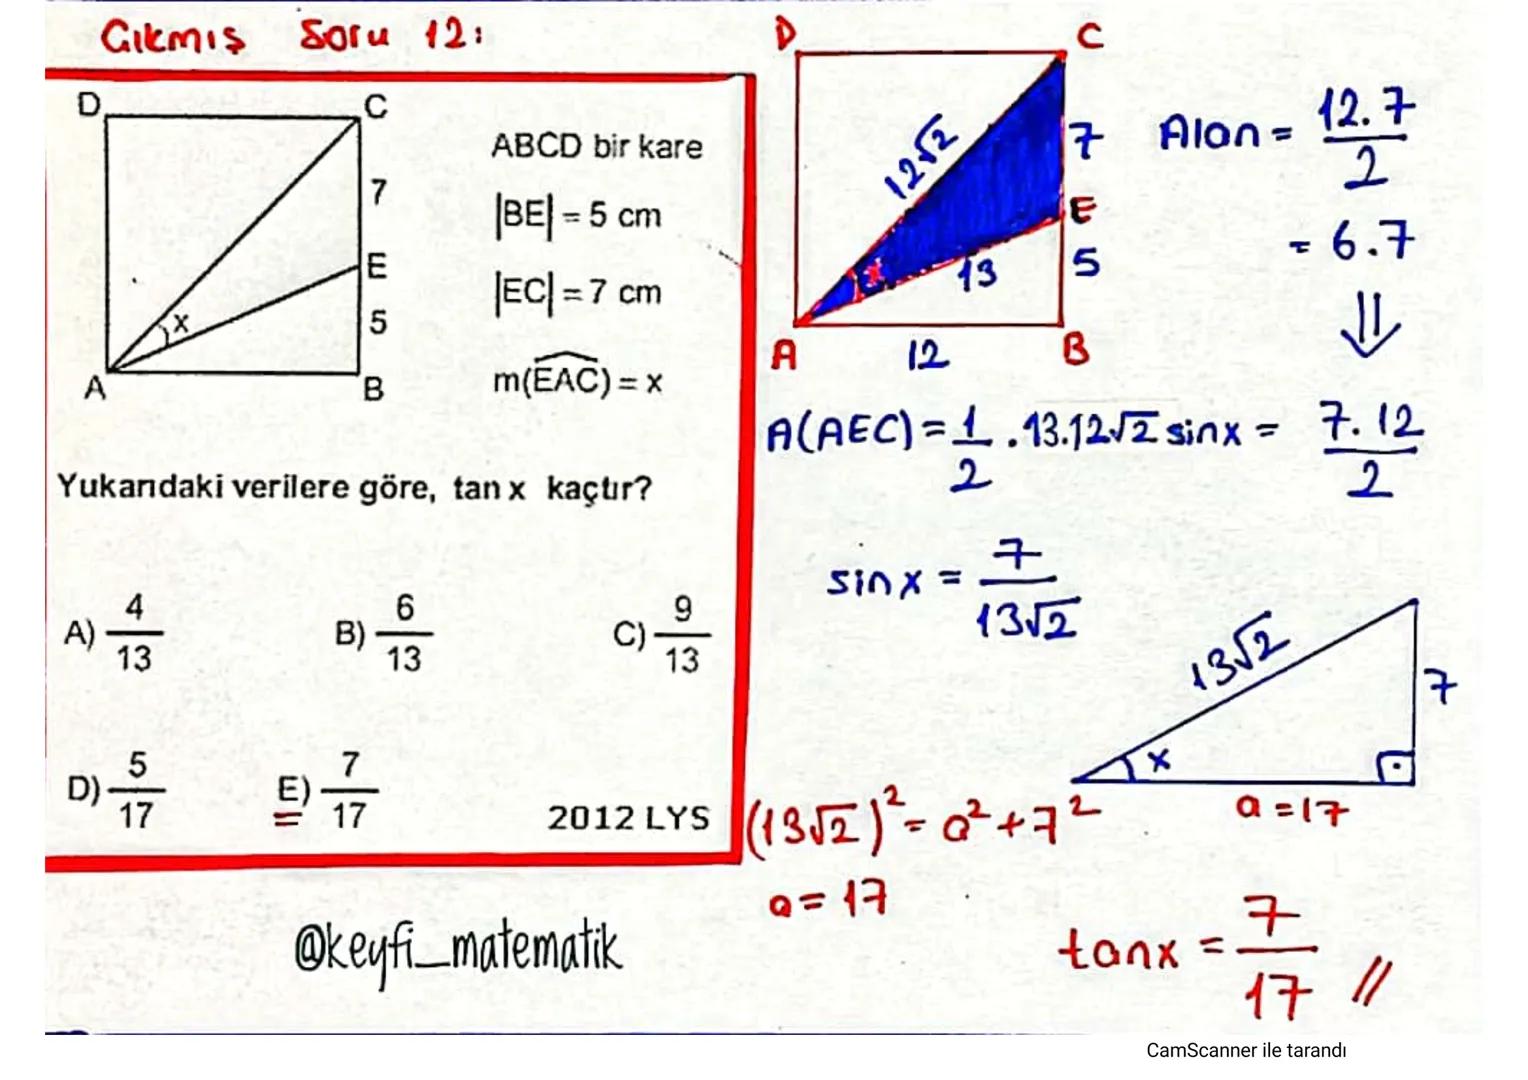 Çıkmış Soru 12:
D C
7
E
5
x
A B
ABCD bir kare
|BE| = 5 cm
|EC| = 7 cm
m(EAC) = x
Yukarıdaki verilere göre, tan x kaçtır?
A) 4/13 B) 6/13 C) 9/13
D) 5/17 E) 7/17 2012 LYS
@keyfi_matematik
D C
12√2 7
E
x 13 5
A 12 B
Alan = 12.7/2
= 6.7
⇓
A(AEC) = 1/2 .13.12√2 sinx = 7.12/2
sinx = 7/13√2
13√2 7
x
a = 17
(13√2)² = a² + 7²
a = 17
tanx = 7/17 //
CamScanner ile tarandı